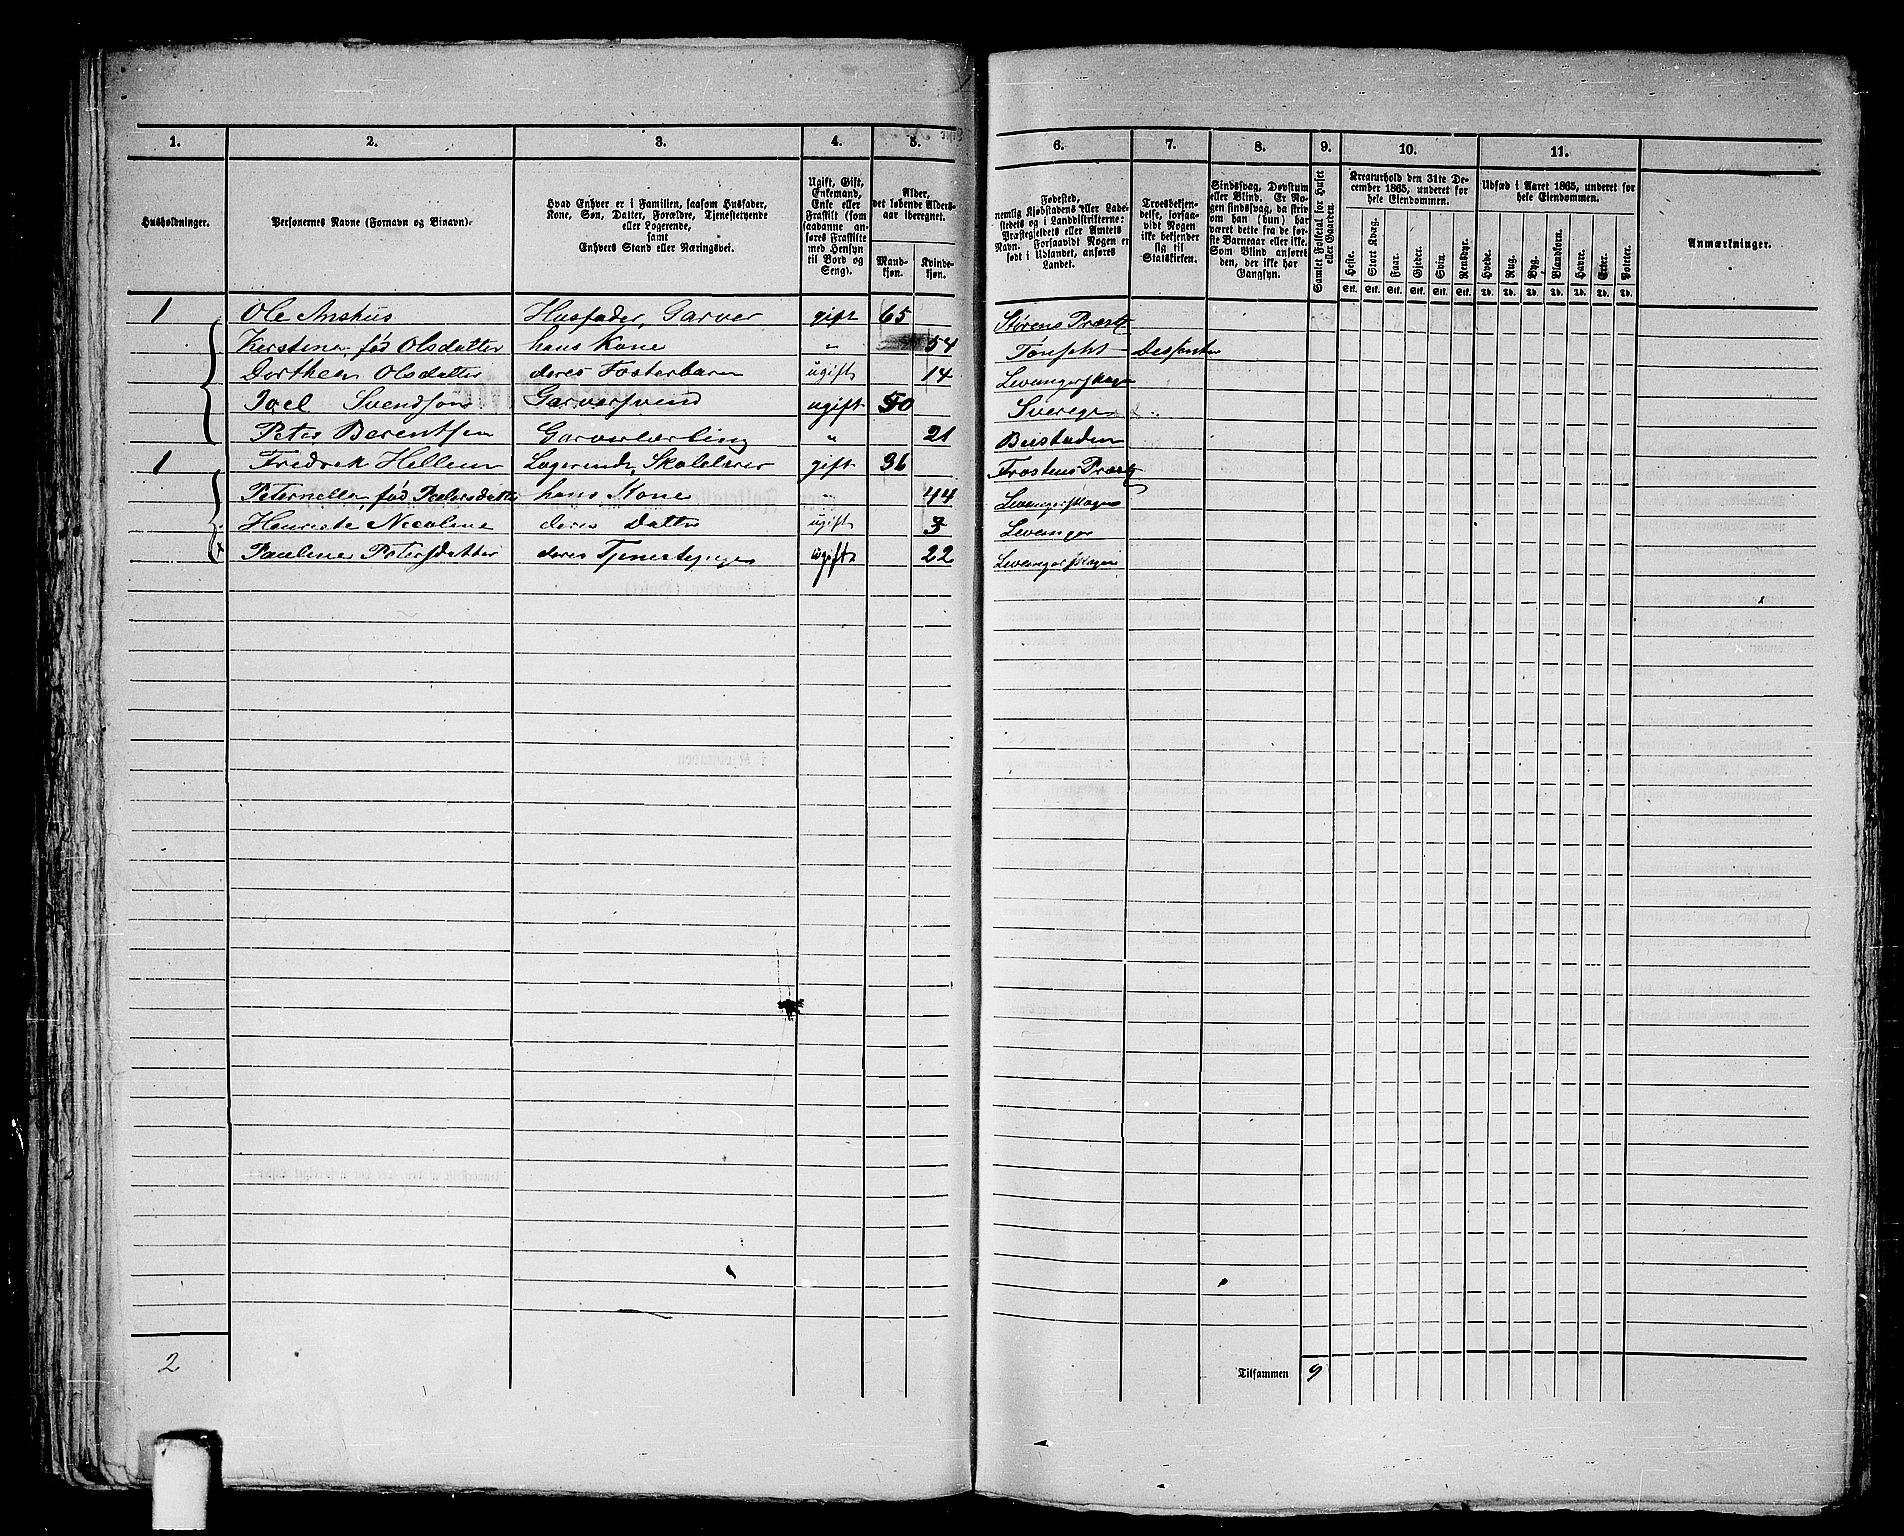 1. 2. 3. 4. 5. 6. 7. 8. 9. 10. 11.
Husholdninger.
Personernes Navne (Fornavn og Binavn).
Hvad Enhver er i Familien, saasom Husfader,
Kone, Søn, Datter, Forældre, Tjenestetyende
eller Logerende,
samt
Enhvers Stand eller Næringsvei.
Ugift, Gift,
Enkemand,
Enke eller
Fraskilt (som
saadanne an-
føres Fraskilte
med Hensyn
til Bord og
Seng).
Alder,
det løbende Alders-
aar iberegnet.
Mand-
kjøn.
Kvinde-
kjøn.
Fødested,
nemlig Kjøbstadens eller Lade-
stedets og i Landdistrikterne:
Præstegjeldets eller Amtets
Navn. Forsaavidt Nogen er
født i Udlandet, anføres
Landet.
Troesbekjen-
delse, forsaa-
vidt Nogen
ikke bekjender
sig til
Statskirken.
Sindssvag, Døvstum
eller Blind. Er No-
gen sindssvag, da skriv
om han (hun) har
været dette fra de før-
ste Barneaar eller ikke.
Som Blind anføres
den, der ikke har
Gangsyn.
Samlet Folketal for Huset
eller Gaarden.
Kreaturhold den 31te De-
cember 1865, underet for
hele Eiendommen.
Heste. Stort Kvæg. Faar. Gjeder. Svin. Rensdyr.
Stk. Stk. Stk. Stk. Stk. Stk.
Udsæd i Aaret 1865, underet for
hele Eiendommen.
Hvede. Rug. Byg. Blandkorn. Havre. Erter. Poteter.
Td. Td. Td. Td. Td. Td. Td.
Anmærkninger.
1 Ole Anshus Husfader, Garver gift 65 Størens Præstg
Kerstina, fød Olsdatter hans Kone " 54 Tønset Dissenter
Dorthea Olsdatter deres Fosterbarn ugift 14 Levangerskogn
Joel Svendsen Garversvend ugift 50 Sverige "
Peter Berentsen Garverlærling " 21 Beistaden
1 Fredrik Hellem Logerende, Skolelærer gift 36 Frostens Præstg
Peternella, fød Pedersdatter hans Kone " 44 Levangerskogn
Henriette Nicoline deres Datter ugift 3 Levanger
x Pauline Petersdatter deres Tjenestepige ugift 22 Levangerskogn
2
Tilsammen 9